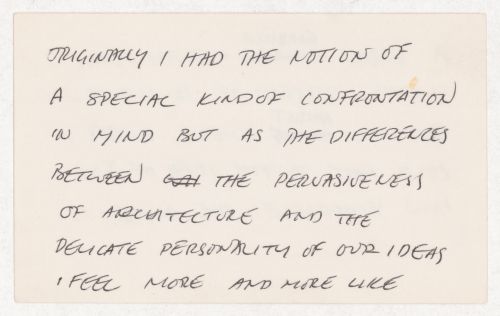 ORIGINALLY I HAD THE NOTION OF
A SPECIAL KIND OF CONFRONTATION
IN MIND BUT AS THE DIFFERENCES
BETWEEN THE PERVASIVENESS
OF ARCHITECTURE AND THE
DELICATE PERSONALITY OF OUR IDEAS
I FEEL MORE AND MORE LIKE